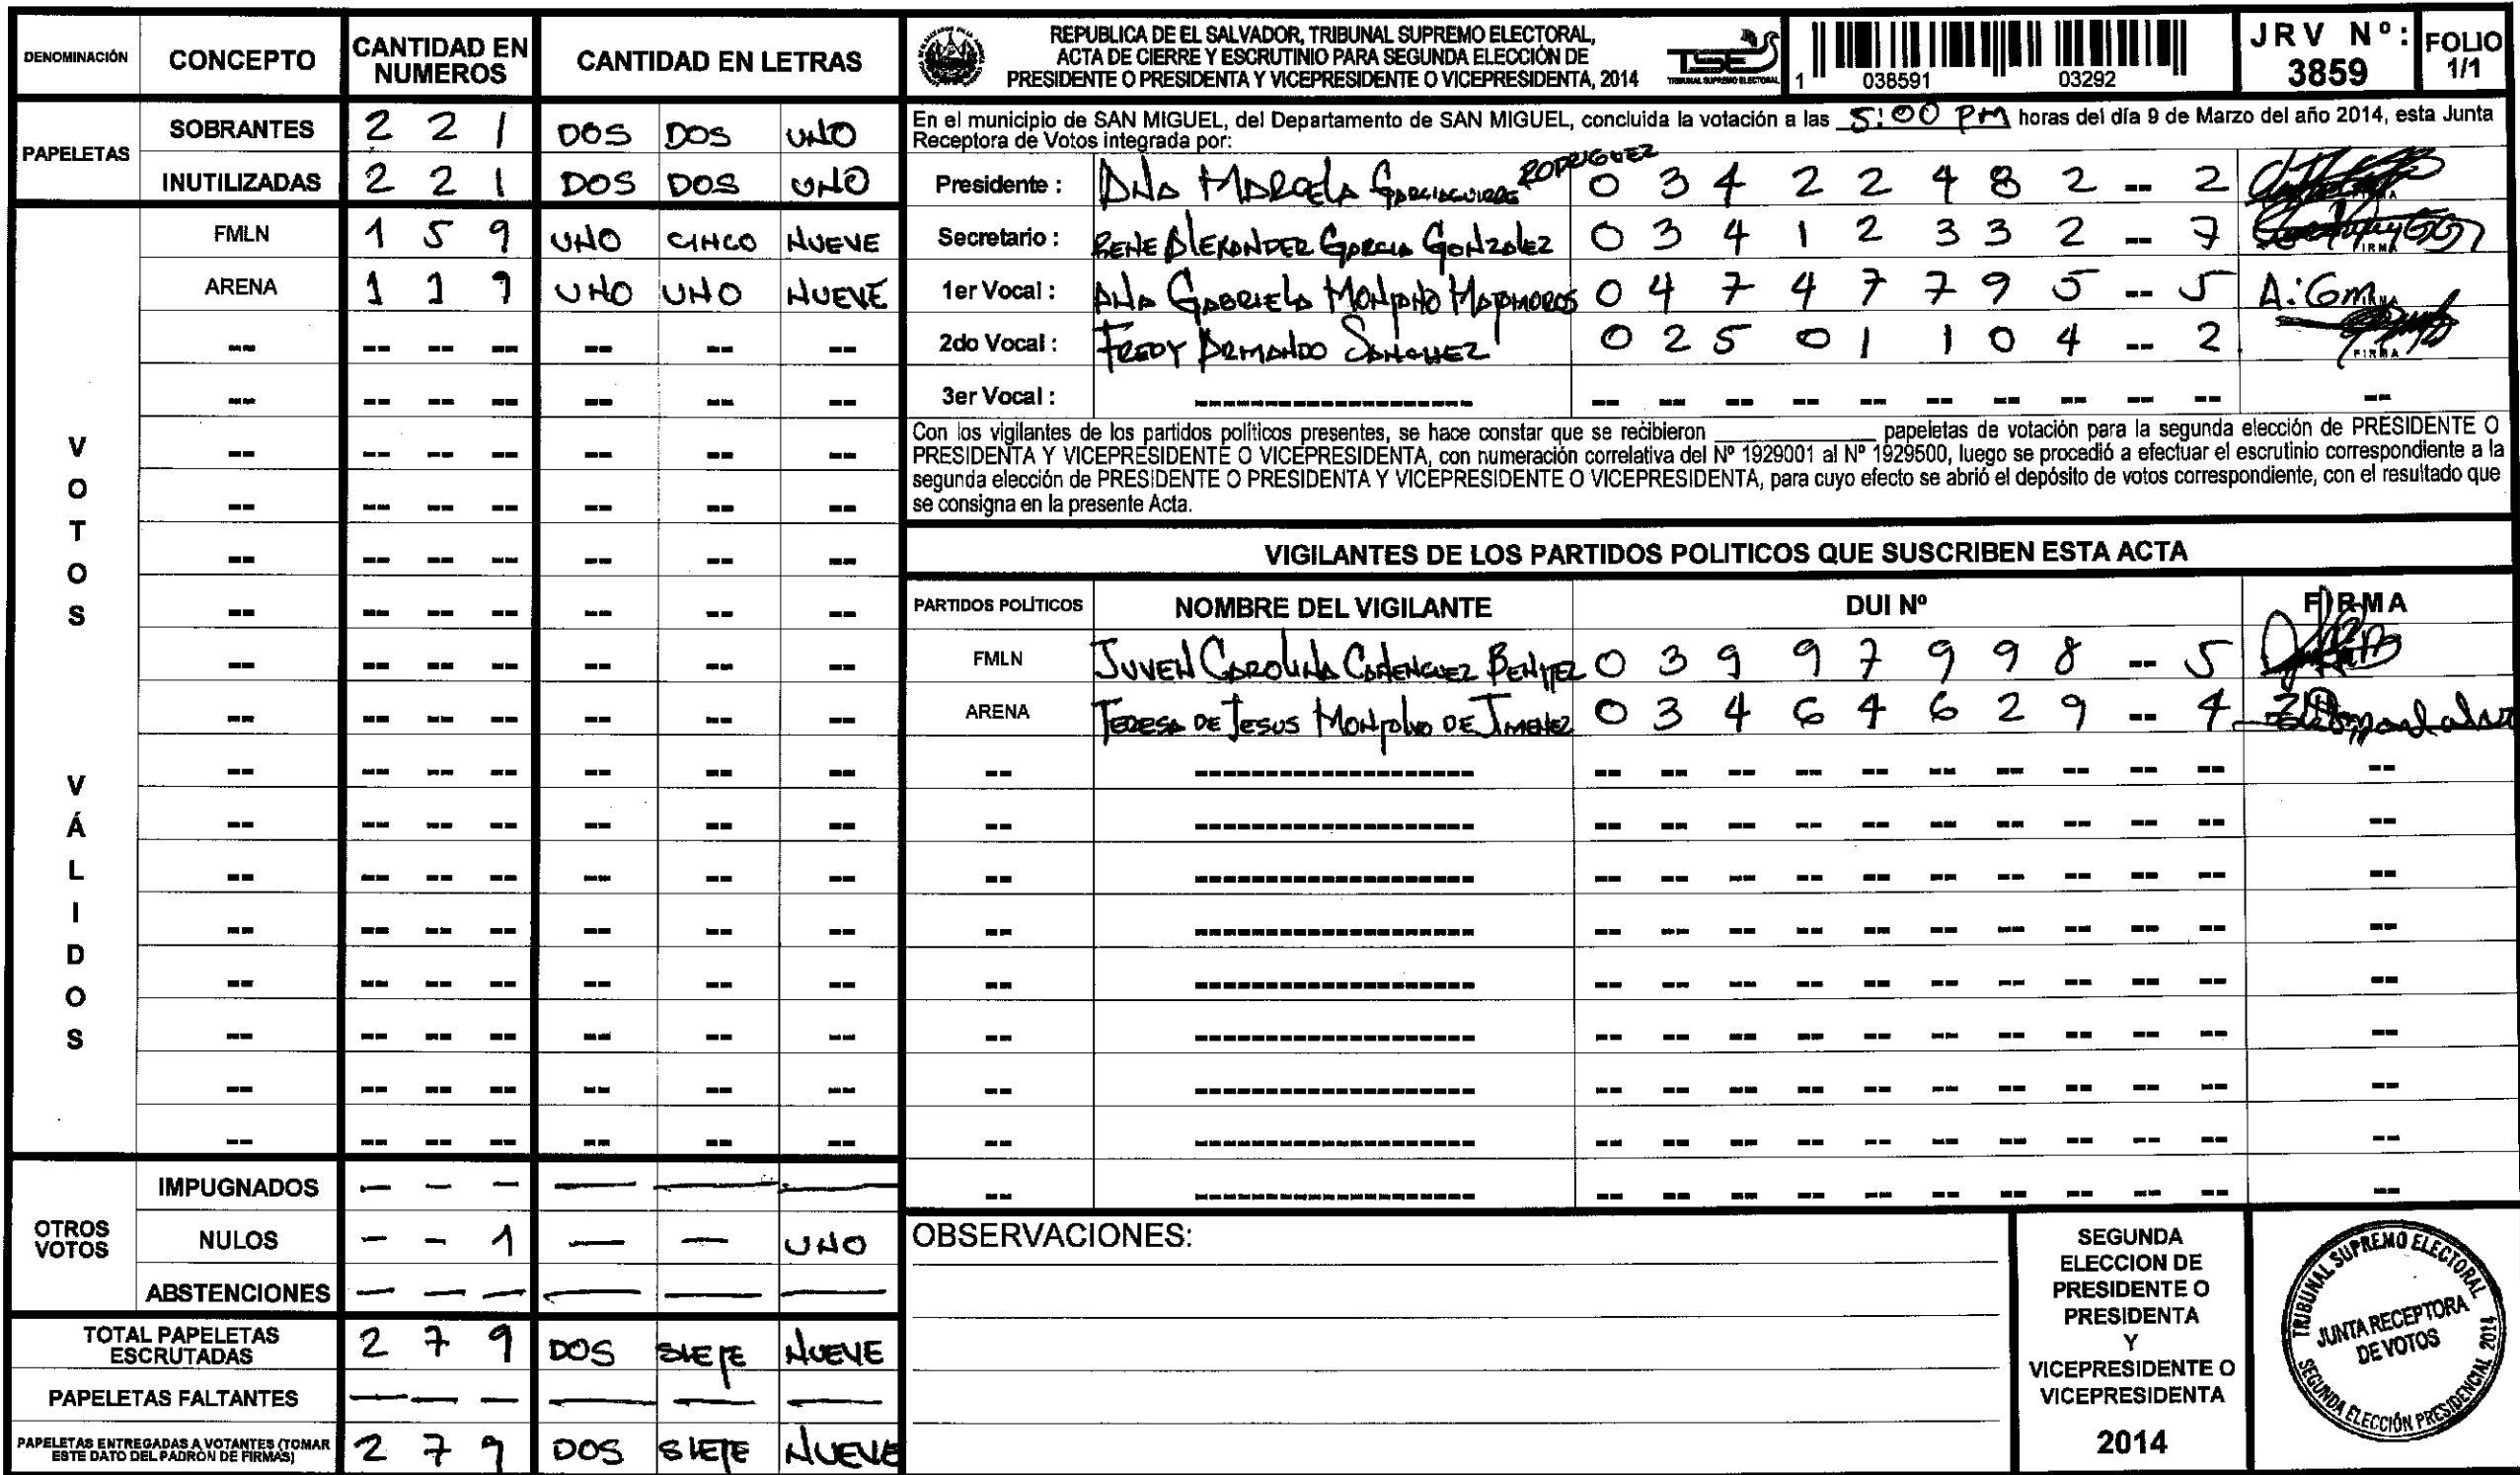 DENOMINACIÓN CONCEPTO CANTIDAD EN NUMEROS CANTIDAD EN LETRAS
PAPELETAS
SOBRANTES 2 2 1 DOS DOS UNO
INUTILIZADAS 2 2 1 DOS DOS UNO
VOTOS VÁLIDOS
FMLN 1 5 9 UNO CINCO NUEVE
ARENA 1 1 9 UNO UNO NUEVE
OTROS VOTOS
IMPUGNADOS — — — — — —
NULOS — — 1 — — UNO
ABSTENCIONES — — — — — —
TOTAL PAPELETAS ESCRUTADAS 2 7 9 DOS SIETE NUEVE
PAPELETAS FALTANTES — — — — — —
PAPELETAS ENTREGADAS A VOTANTES (TOMAR ESTE DATO DEL PADRÓN DE FIRMAS) 2 7 9 DOS SIETE NUEVE
REPUBLICA DE EL SALVADOR, TRIBUNAL SUPREMO ELECTORAL,
ACTA DE CIERRE Y ESCRUTINIO PARA SEGUNDA ELECCIÓN DE
PRESIDENTE O PRESIDENTA Y VICEPRESIDENTE O VICEPRESIDENTA, 2014
TSE
TRIBUNAL SUPREMO ELECTORAL
1 038591 03292
JRV Nº: 3859
FOLIO 1/1
En el municipio de SAN MIGUEL, del Departamento de SAN MIGUEL, concluida la votación a las 5:00 PM horas del día 9 de Marzo del año 2014, esta Junta
Receptora de Votos integrada por:
Presidente : ANA MARCELA RODRIGUEZ 0 3 4 2 2 4 8 2 -- 2
Secretario : RENE ALEXANDER GARCIA GONZALEZ 0 3 4 1 2 3 3 2 -- 7 FIRMA
1er Vocal : ANA GABRIELA MONTANO MATAMOROS 0 4 7 4 7 7 9 5 -- 5 A:Gm
2do Vocal : FREDY ARMANDO SANCHEZ 0 2 5 0 1 1 0 4 -- 2 FIRMA
3er Vocal :
Con los vigilantes de los partidos políticos presentes, se hace constar que se recibieron ____________ papeletas de votación para la segunda elección de PRESIDENTE O
PRESIDENTA Y VICEPRESIDENTE O VICEPRESIDENTA, con numeración correlativa del Nº 1929001 al Nº 1929500, luego se procedió a efectuar el escrutinio correspondiente a la
segunda elección de PRESIDENTE O PRESIDENTA Y VICEPRESIDENTE O VICEPRESIDENTA, para cuyo efecto se abrió el depósito de votos correspondiente, con el resultado que
se consigna en la presente Acta.
VIGILANTES DE LOS PARTIDOS POLITICOS QUE SUSCRIBEN ESTA ACTA
PARTIDOS POLÍTICOS NOMBRE DEL VIGILANTE DUI Nº FIRMA
FMLN JUVEN CAROLINA BENITEZ 0 3 9 9 7 9 9 8 -- 5
ARENA TERESA DE JESUS MONTALVO DE JIMENEZ 0 3 4 6 4 6 2 9 -- 4
OBSERVACIONES:
SEGUNDA
ELECCION DE
PRESIDENTE O
PRESIDENTA
Y
VICEPRESIDENTE O
VICEPRESIDENTA
2014
TRIBUNAL SUPREMO ELECTORAL
JUNTA RECEPTORA
DE VOTOS
SEGUNDA ELECCIÓN PRESIDENCIAL 2014